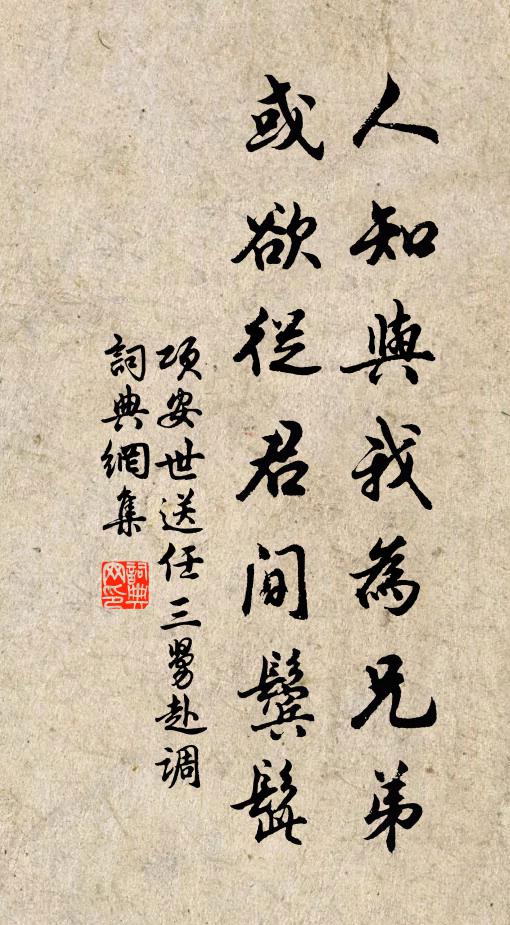 人知與我為兄弟
或欲從君間鬢髭
項安世送任三舅赴調
詞典網集
詞典网印